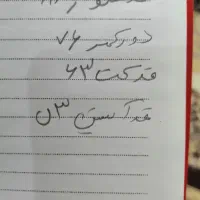 دور کمر ۷۶
قد کت ۶۳
قد آستین ۵۳